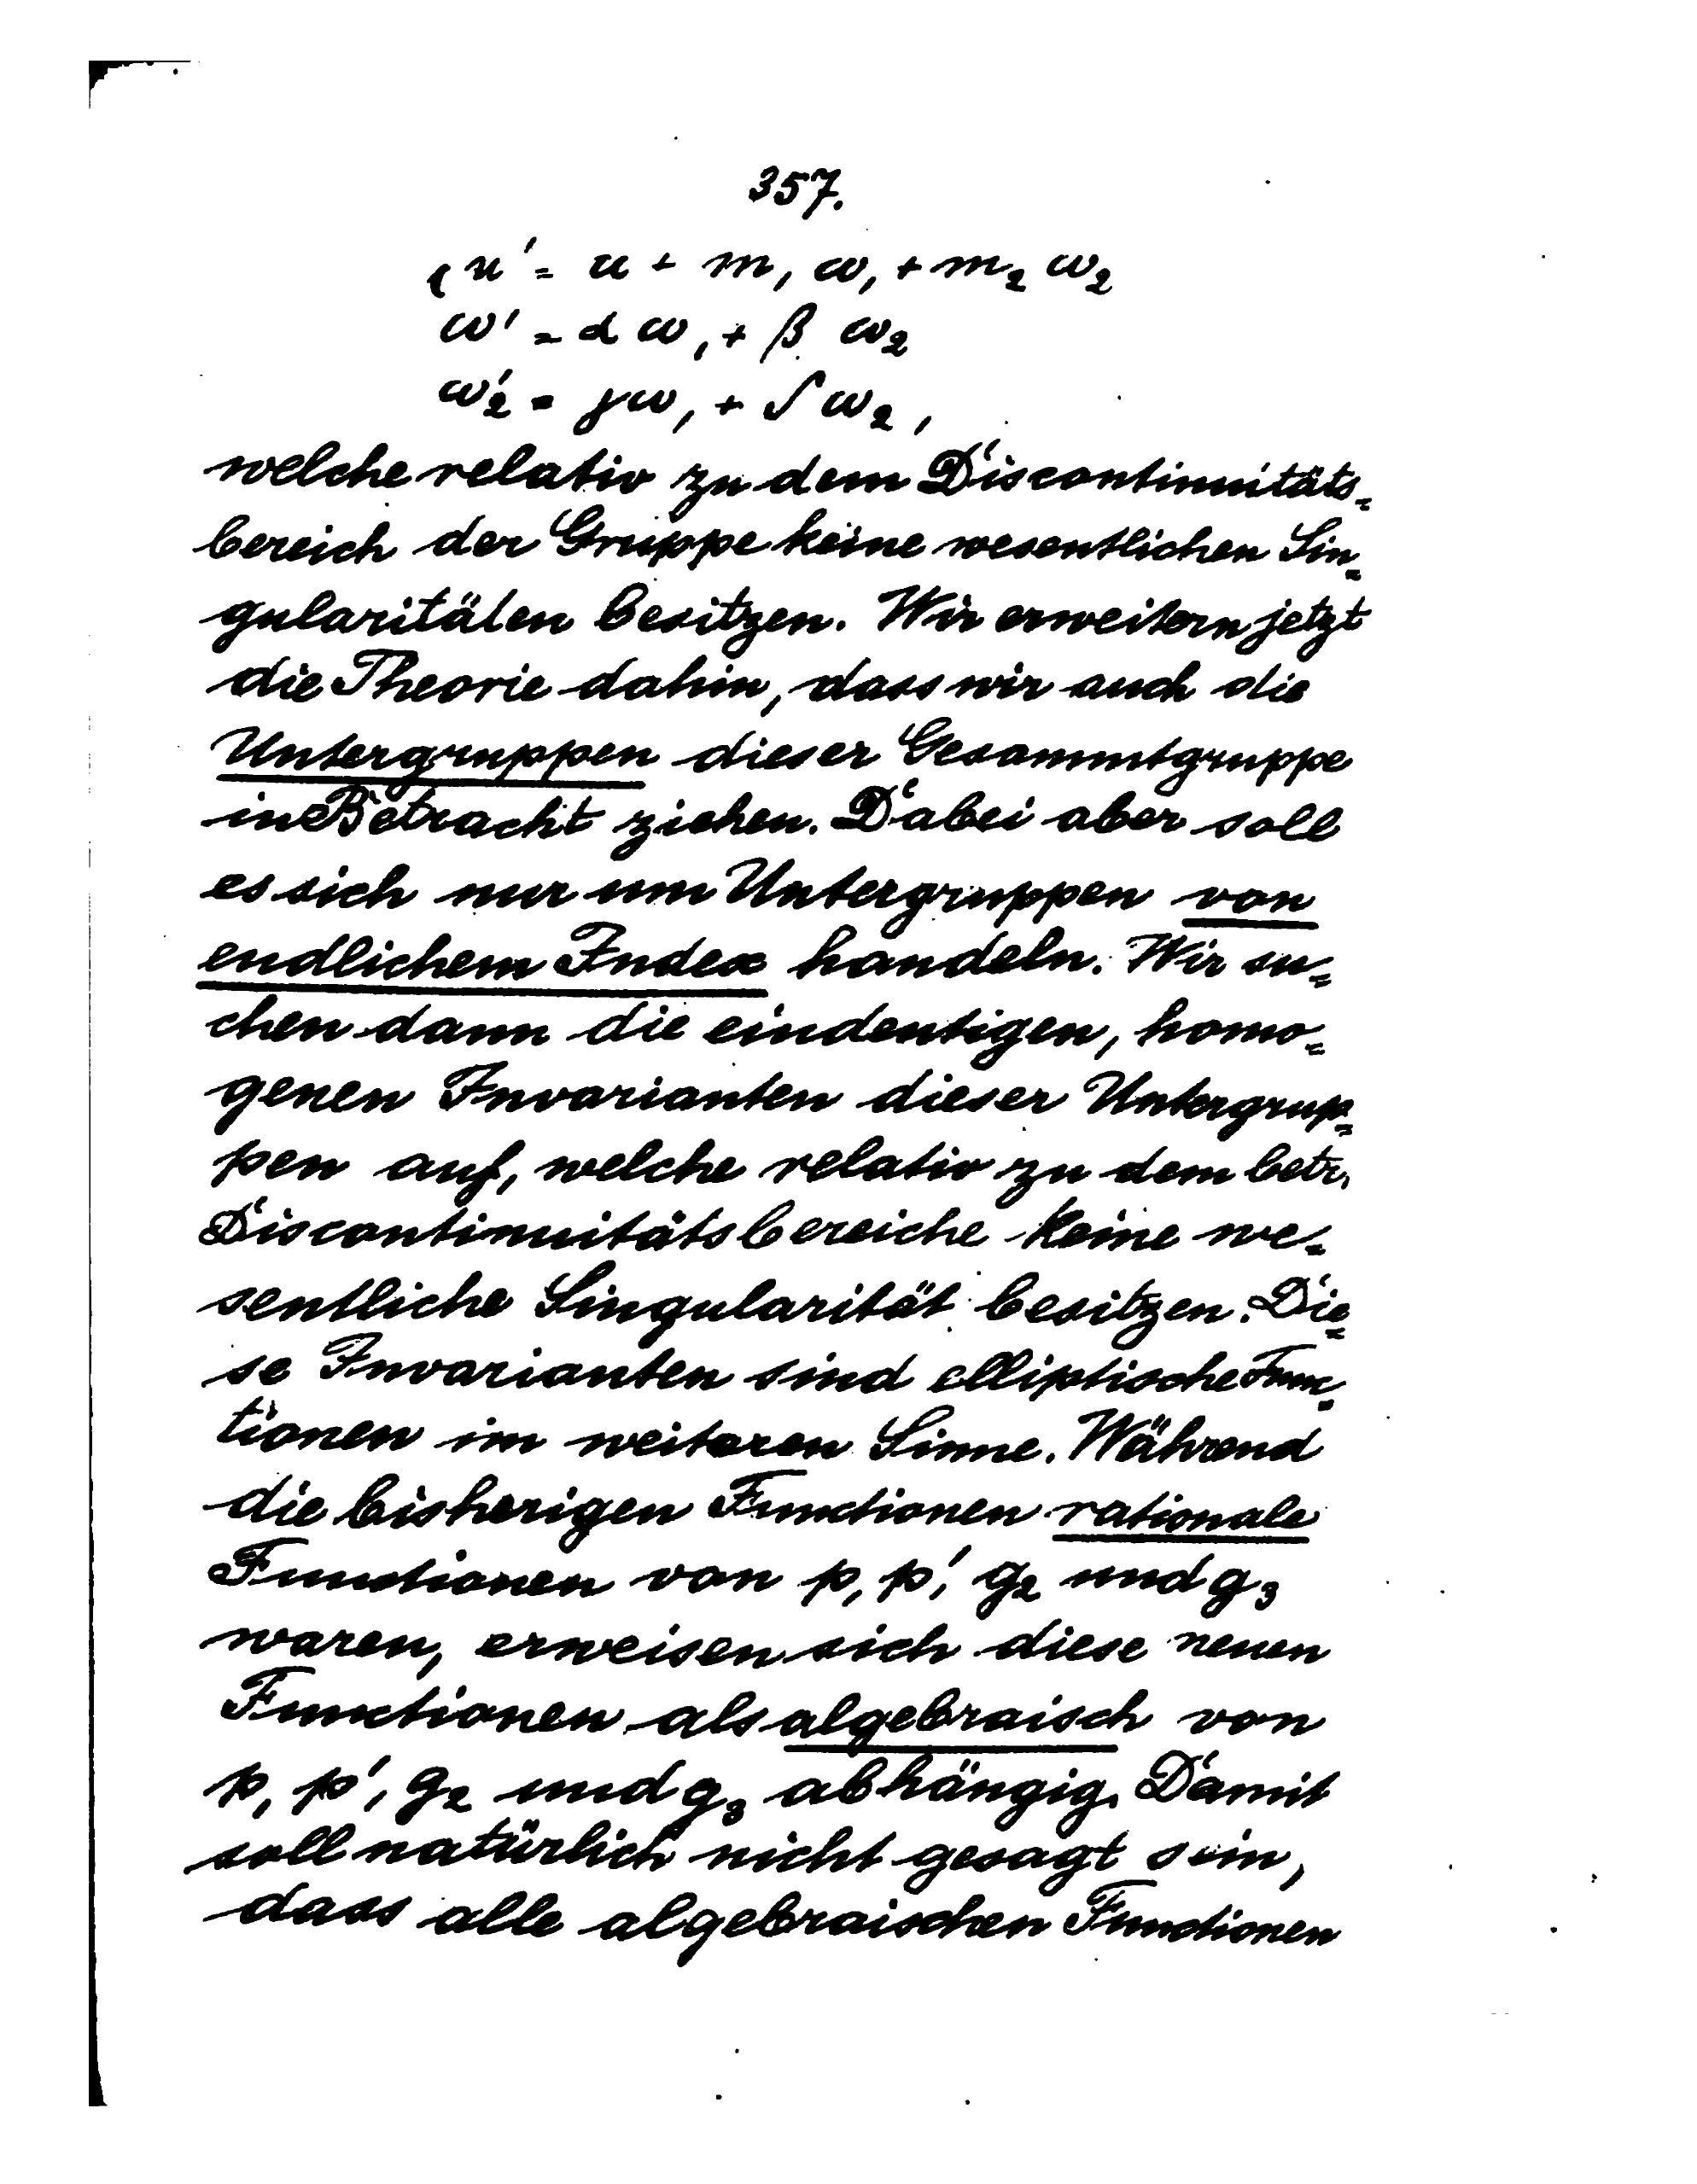 357.
(u' = u + m₁ω₁ + m₂ω₂
ω' = αω₁ + βω₂
ω₂' = γω₁ + δω₂,
welche relativ zu dem Discontinuitäts=
bereich der Gruppe keine wesentlichen Sin=
gularitäten besitzen. Wir erweitern jetzt
die Theorie dahin, dass wir auch die
Untergruppen dieser Gesammtgruppe
in Betracht ziehen. Dabei aber soll
es sich nur um Untergruppen von
endlichem Index handeln. Wir su=
chen dann die eindeutigen, homo=
genen Invarianten dieser Untergrup=
pen auf, welche relativ zu dem betr.
Discontinuitätsbereiche keine we=
sentliche Singularität besitzen. Die=
se Invarianten sind elliptische Func=
tionen im weiteren Sinne. Während
die bisherigen Functionen rationale
Functionen von p, p', g₂ und g₃
waren, erweisen sich diese neuen
Functionen als algebraisch von
p, p', g₂ und g₃ abhängig. Damit
soll natürlich nicht gesagt sein,
dass alle algebraischen Functionen